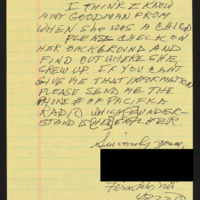 I THINK I KNOW
AMY GOODMAN FROM
WHEN SHE WAS A CHILD
PLEASE CHECK ON
HER BACKGROUND AND
FIND OUT WHERE SHE
GREW UP IF YOU CAN'T
GIVE ME THAT INFORMATION
PLEASE SEND ME THE
PHONE # OF PACIFICA
RADIO WHICH I UNDER-
STAND IS HER
Sincerely yours,